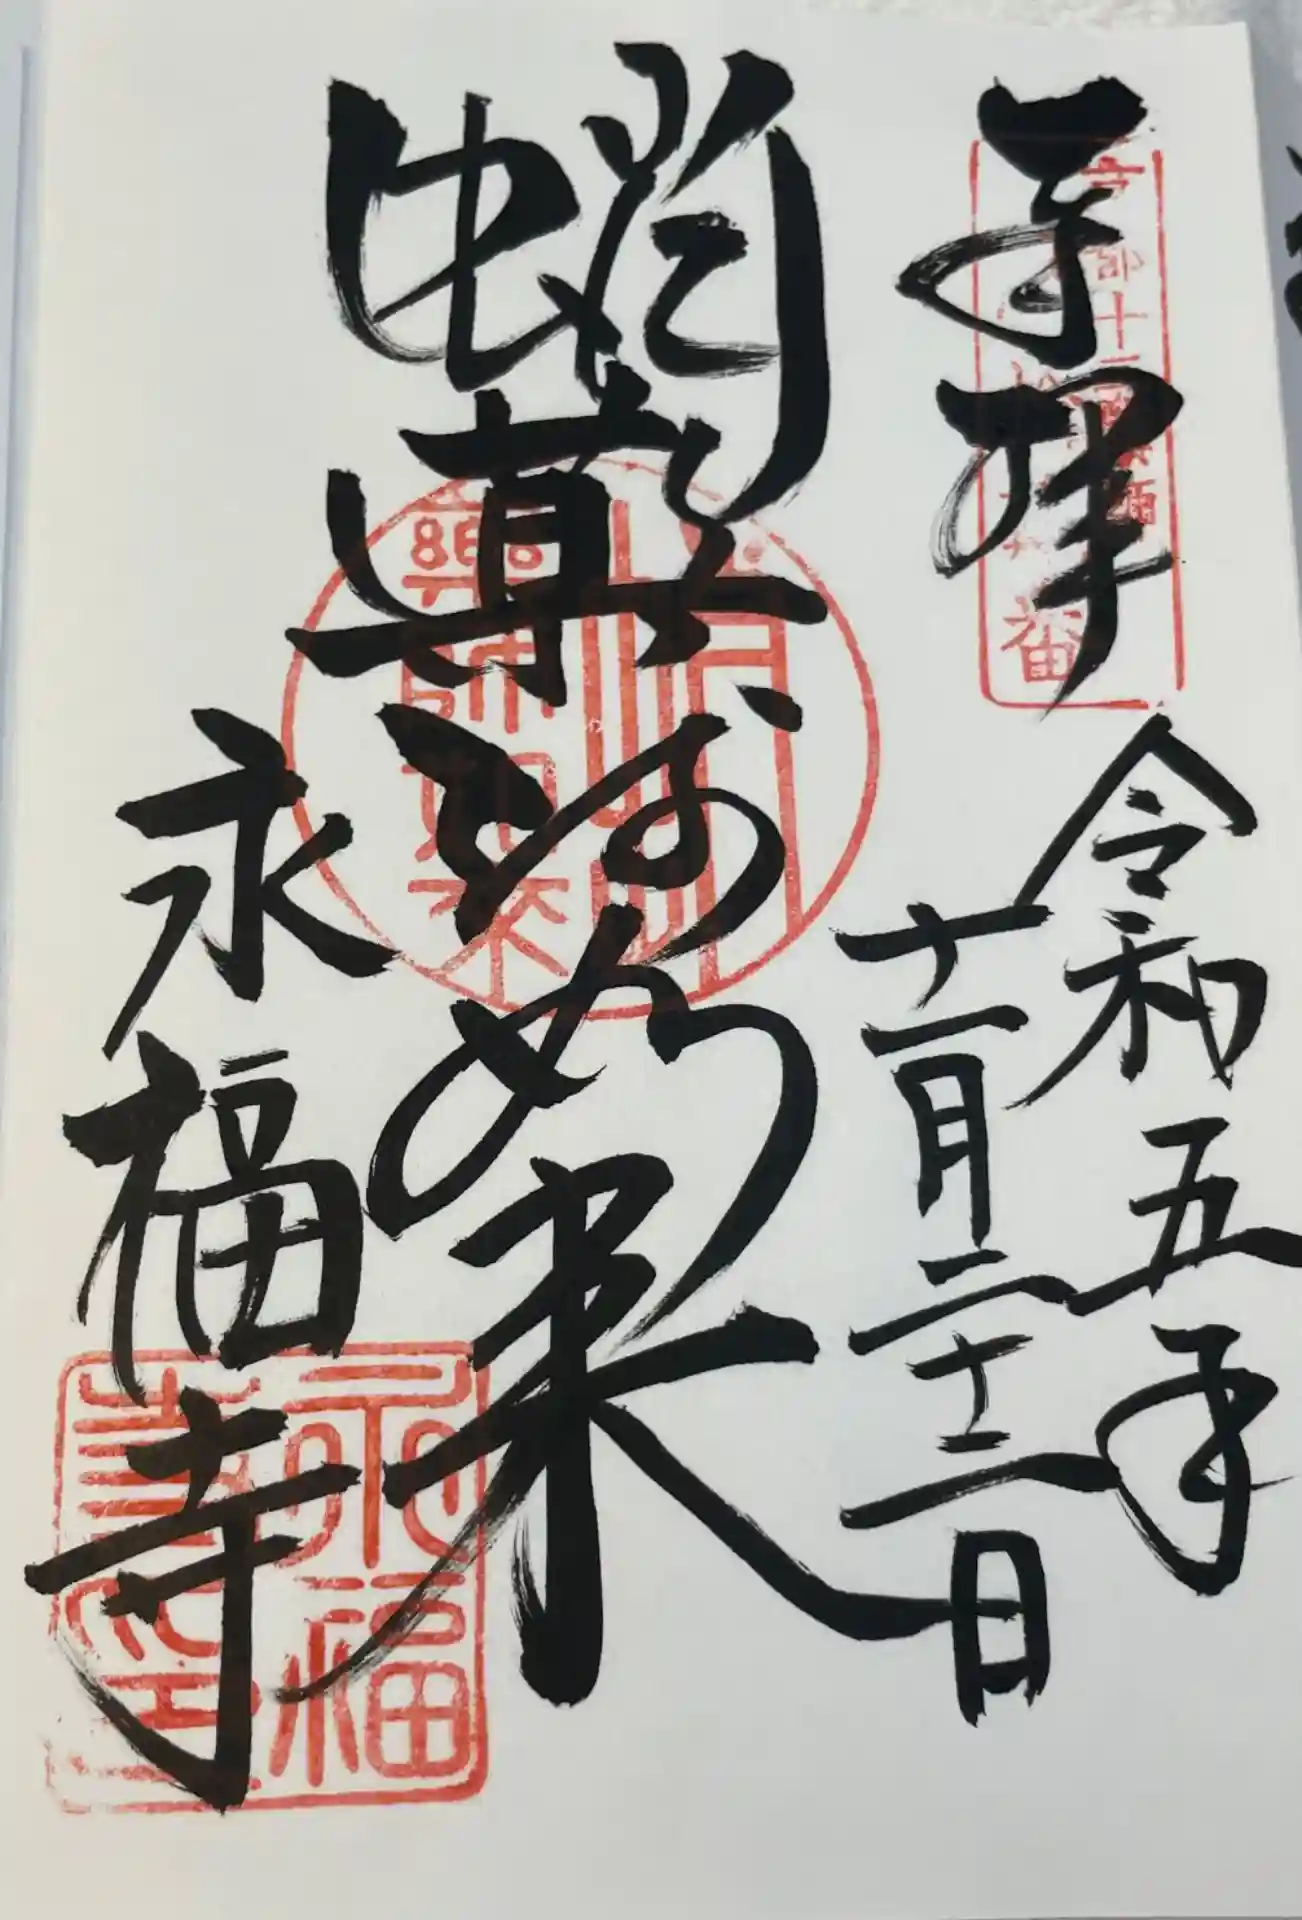 奉拝
令和五年
十一月二十二日
蛸薬師如来
永福寺
京都十二薬師
番
藥師如来
永福
寺印